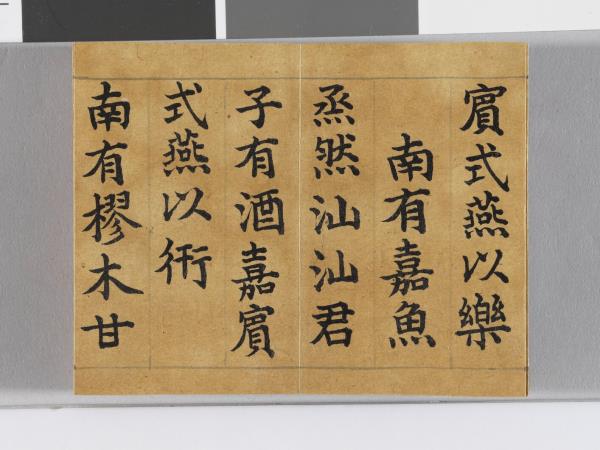 賔式燕以樂
南有嘉魚
烝然汕汕君
子有酒嘉賔
式燕以衎
南有樛木甘